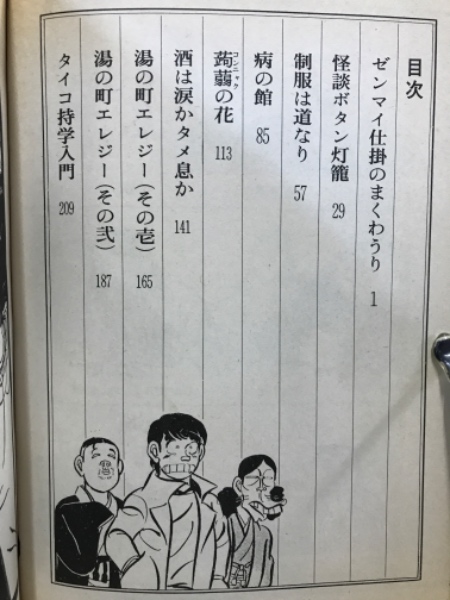 目次
ゼンマイ仕掛のまくわうり 1
怪談ボタン灯籠 29
制服は道なり 57
病の館 85
蒟蒻の花 113
コンニャク
酒は涙かタメ息か 141
湯の町エレジー(その壱) 165
湯の町エレジー(その弐) 187
タイコ持学入門 209